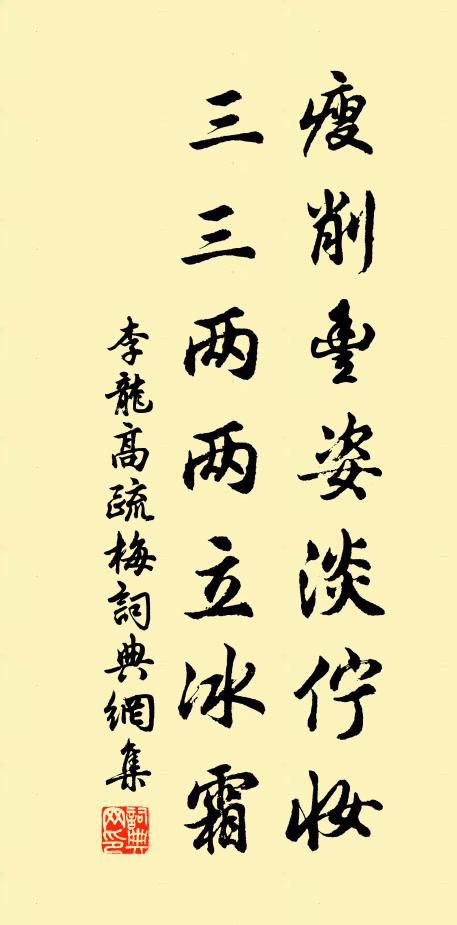 瘦削豊姿淡佇妆
三三两两立冰霜
李龍高疏梅詞典網集
詞典网印